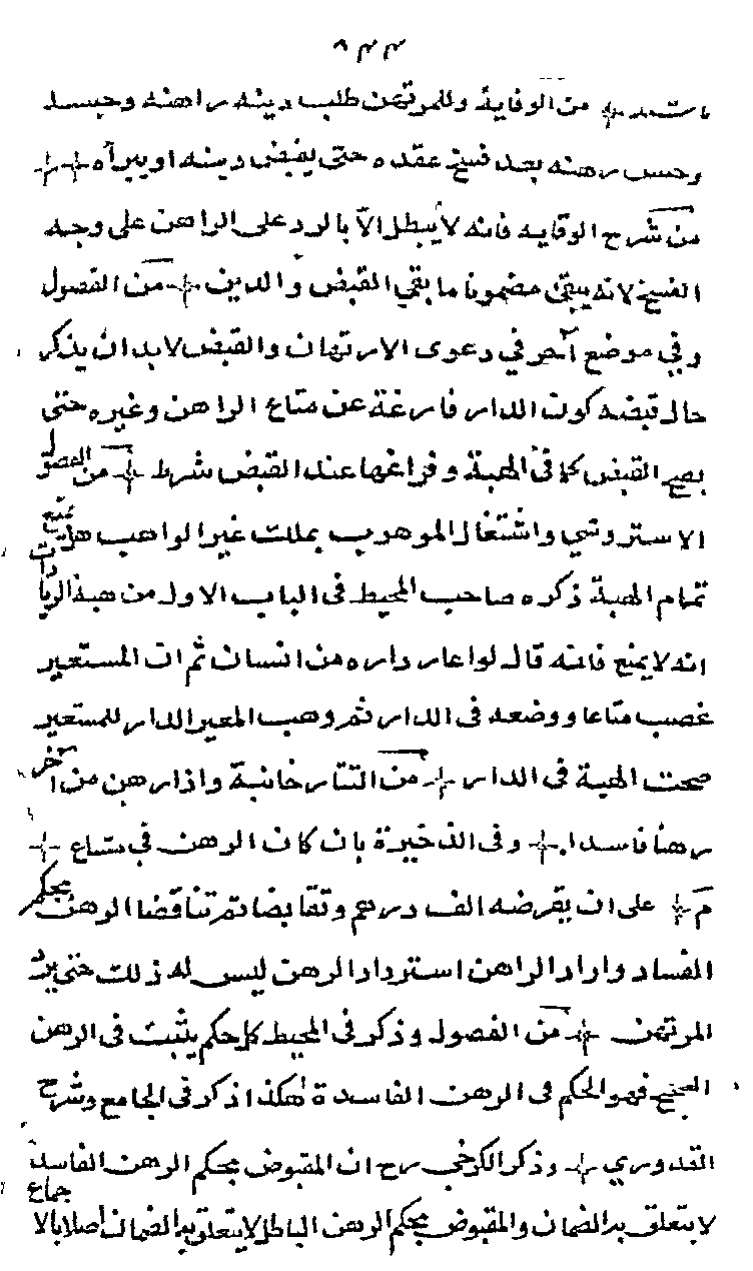 ٨٤٤
من الوقاية وللمرتهن طلب دينه راهنه وحبسه
وحبس رهنه بعد فسخ عقده حتى يقبض دينه او يبرأه
من شرح الوقايه فانه لا يبطل الا بالرد على الراهن على وجه
الفسخ لانه يبقى مضمونا ما بقي القبض والدين من الفصول
وفي موضع آخر في دعوى الارتهان والقبض لا بد ان يذكر
حال قبضه كون الدار فارغة عن متاع الراهن وغيره حتى
يصح القبض كما في الهبة وفراغها عند القبض شرط من الفصول
الاستروشني واشتغال الموهوب بملك غير الواهب هل يمنع
تمام الهبة ذكره صاحب المحيط في الباب الاول من هبة الزيادات
انه لا يمنع فانه قال لو اعار داره من انسان ثم ان المستعير
غصب متاعا ووضعه في الدار ثم وهب المعير الدار للمستعير
صحت الهبة في الدار من التتارخانية واذا رهن من آخر
رهنا فاسدا وفي الذخيرة بان كان الرهن في مشاع
م على ان يقرضه الف درهم وتقابضا ثم تناقضا الرهن بحكم
الفساد واراد الراهن استرداد الرهن ليس له ذلك حتى
المرتهن من الفصول وذكر في المحيط كل حكم يثبت في الرهن
الصحيح فهو الحكم في الرهن الفاسدة هكذا ذكر في الجامع وشرح
القدوري وذكر الكرخي رح ان المقبوض بحكم الرهن الفاسد
لا يتعلق به الضمان والمقبوض بحكم الرهن الباطل لا يتعلق به الضمان اصلا بالاجماع